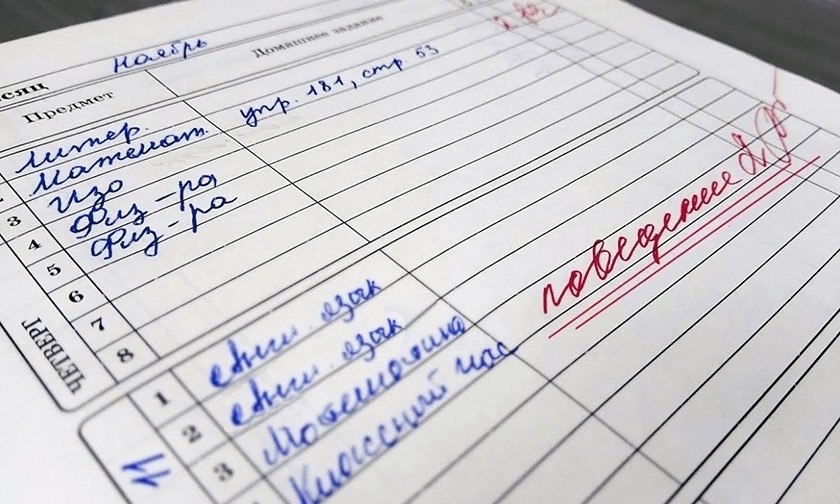 сяц ноябрь
Предмет Домашнее задание
литер.
Математ. упр. 181, стр 53
3 Изо
4 Физ-ра
5 Физ-ра
6
7
8
ЧЕТВЕРГ
поведение 2
1 Англ. язык
2 Англ. язык
3 Математика
Классный час
11